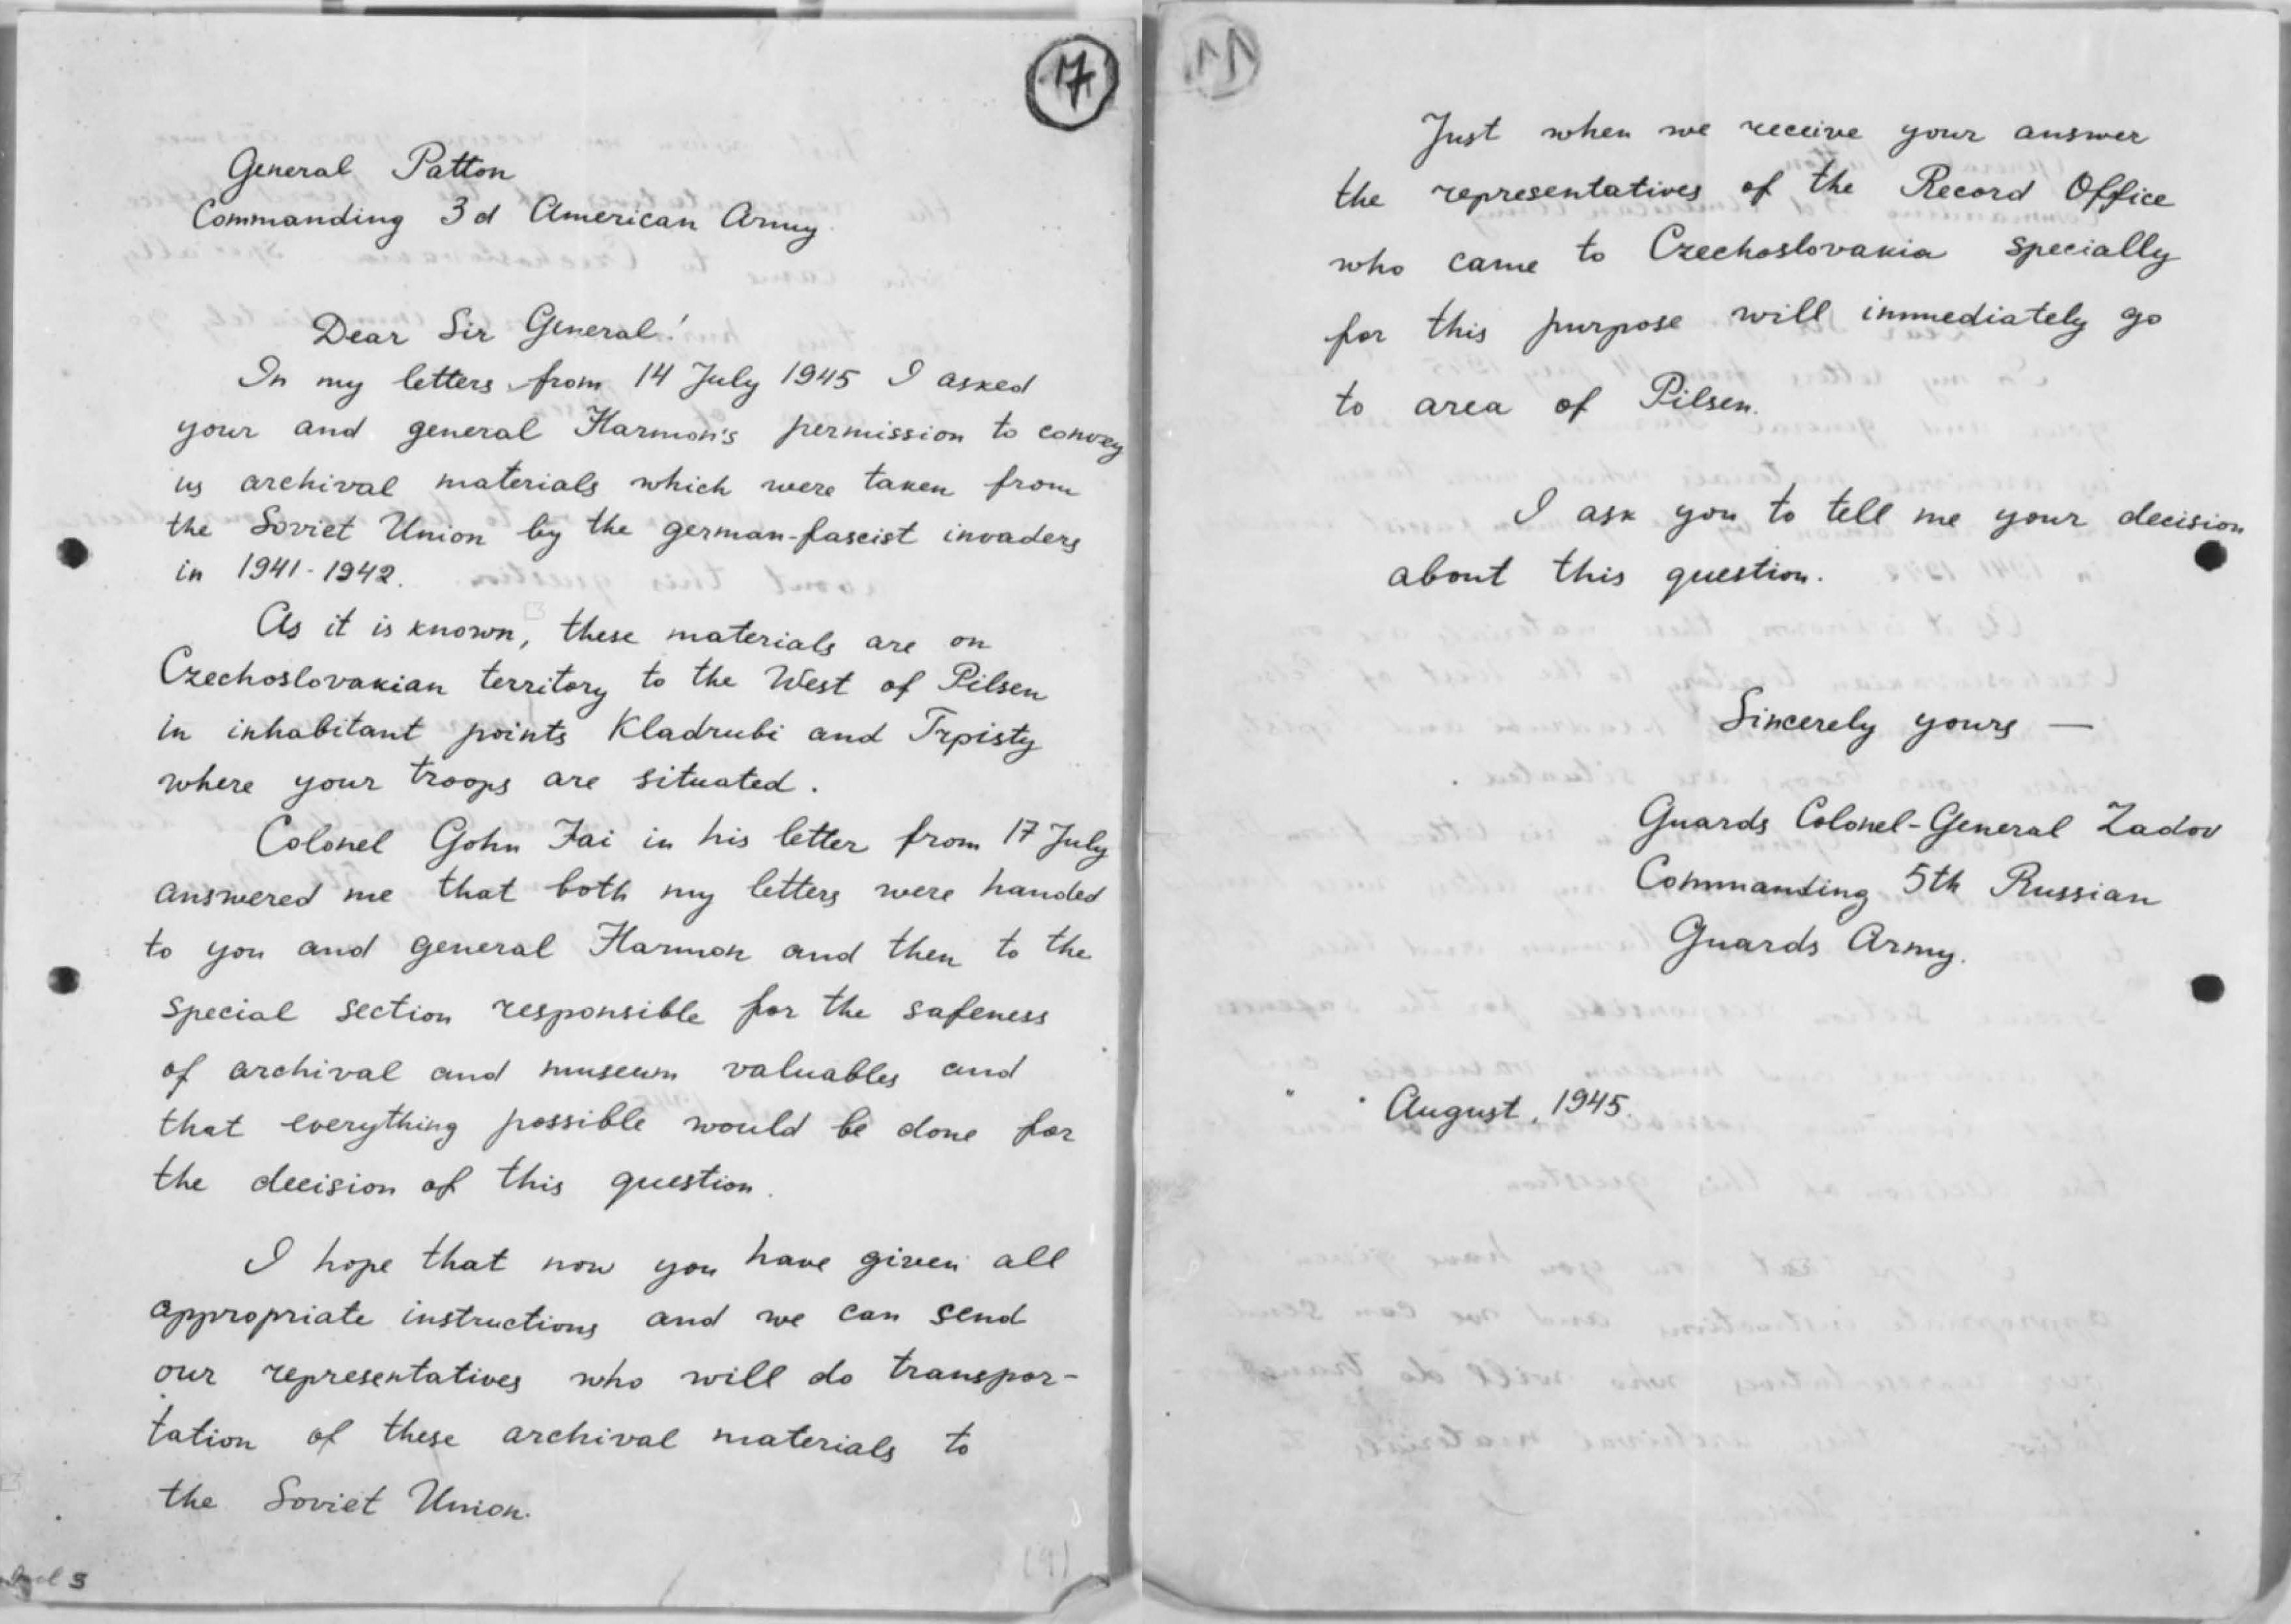 17
General Patton
Commanding 3d American Army.
Dear Sir General!
In my letters from 14 July 1945 I asked
your and general Harmon's permission to convey
us archival materials which were taken from
the Soviet Union by the german-fascist invaders
in 1941-1942.
As it is known, these materials are on
Czechoslovakian territory to the West of Pilsen
in inhabitant points Kladrubi and Trpisty
where your troops are situated.
Colonel Gohn Fai in his letter from 17 July
answered me that both my letters were handed
to you and general Harmon and then to the
special section responsible for the safeness
of archival and museum valuables and
that everything possible would be done for
the decision of this question.
I hope that now you have given all
appropriate instructions and we can send
our representatives who will do transpor-
tation of these archival materials to
the Soviet Union.
(9)
3
Just when we receive your answer
the representatives of the Record Office
who came to Czechoslovakia specially
for this purpose will immediately go
to area of Pilsen.
I ask you to tell me your decision
about this question.
Sincerely yours —
Guards Colonel-General Zadov
Commanding 5th Russian
Guards Army.
" " August, 1945.